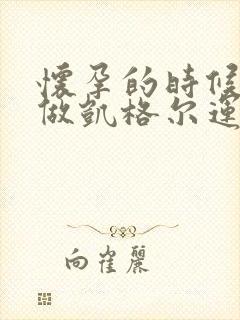 懷孕的時候
做凱格尔運
向崔麗